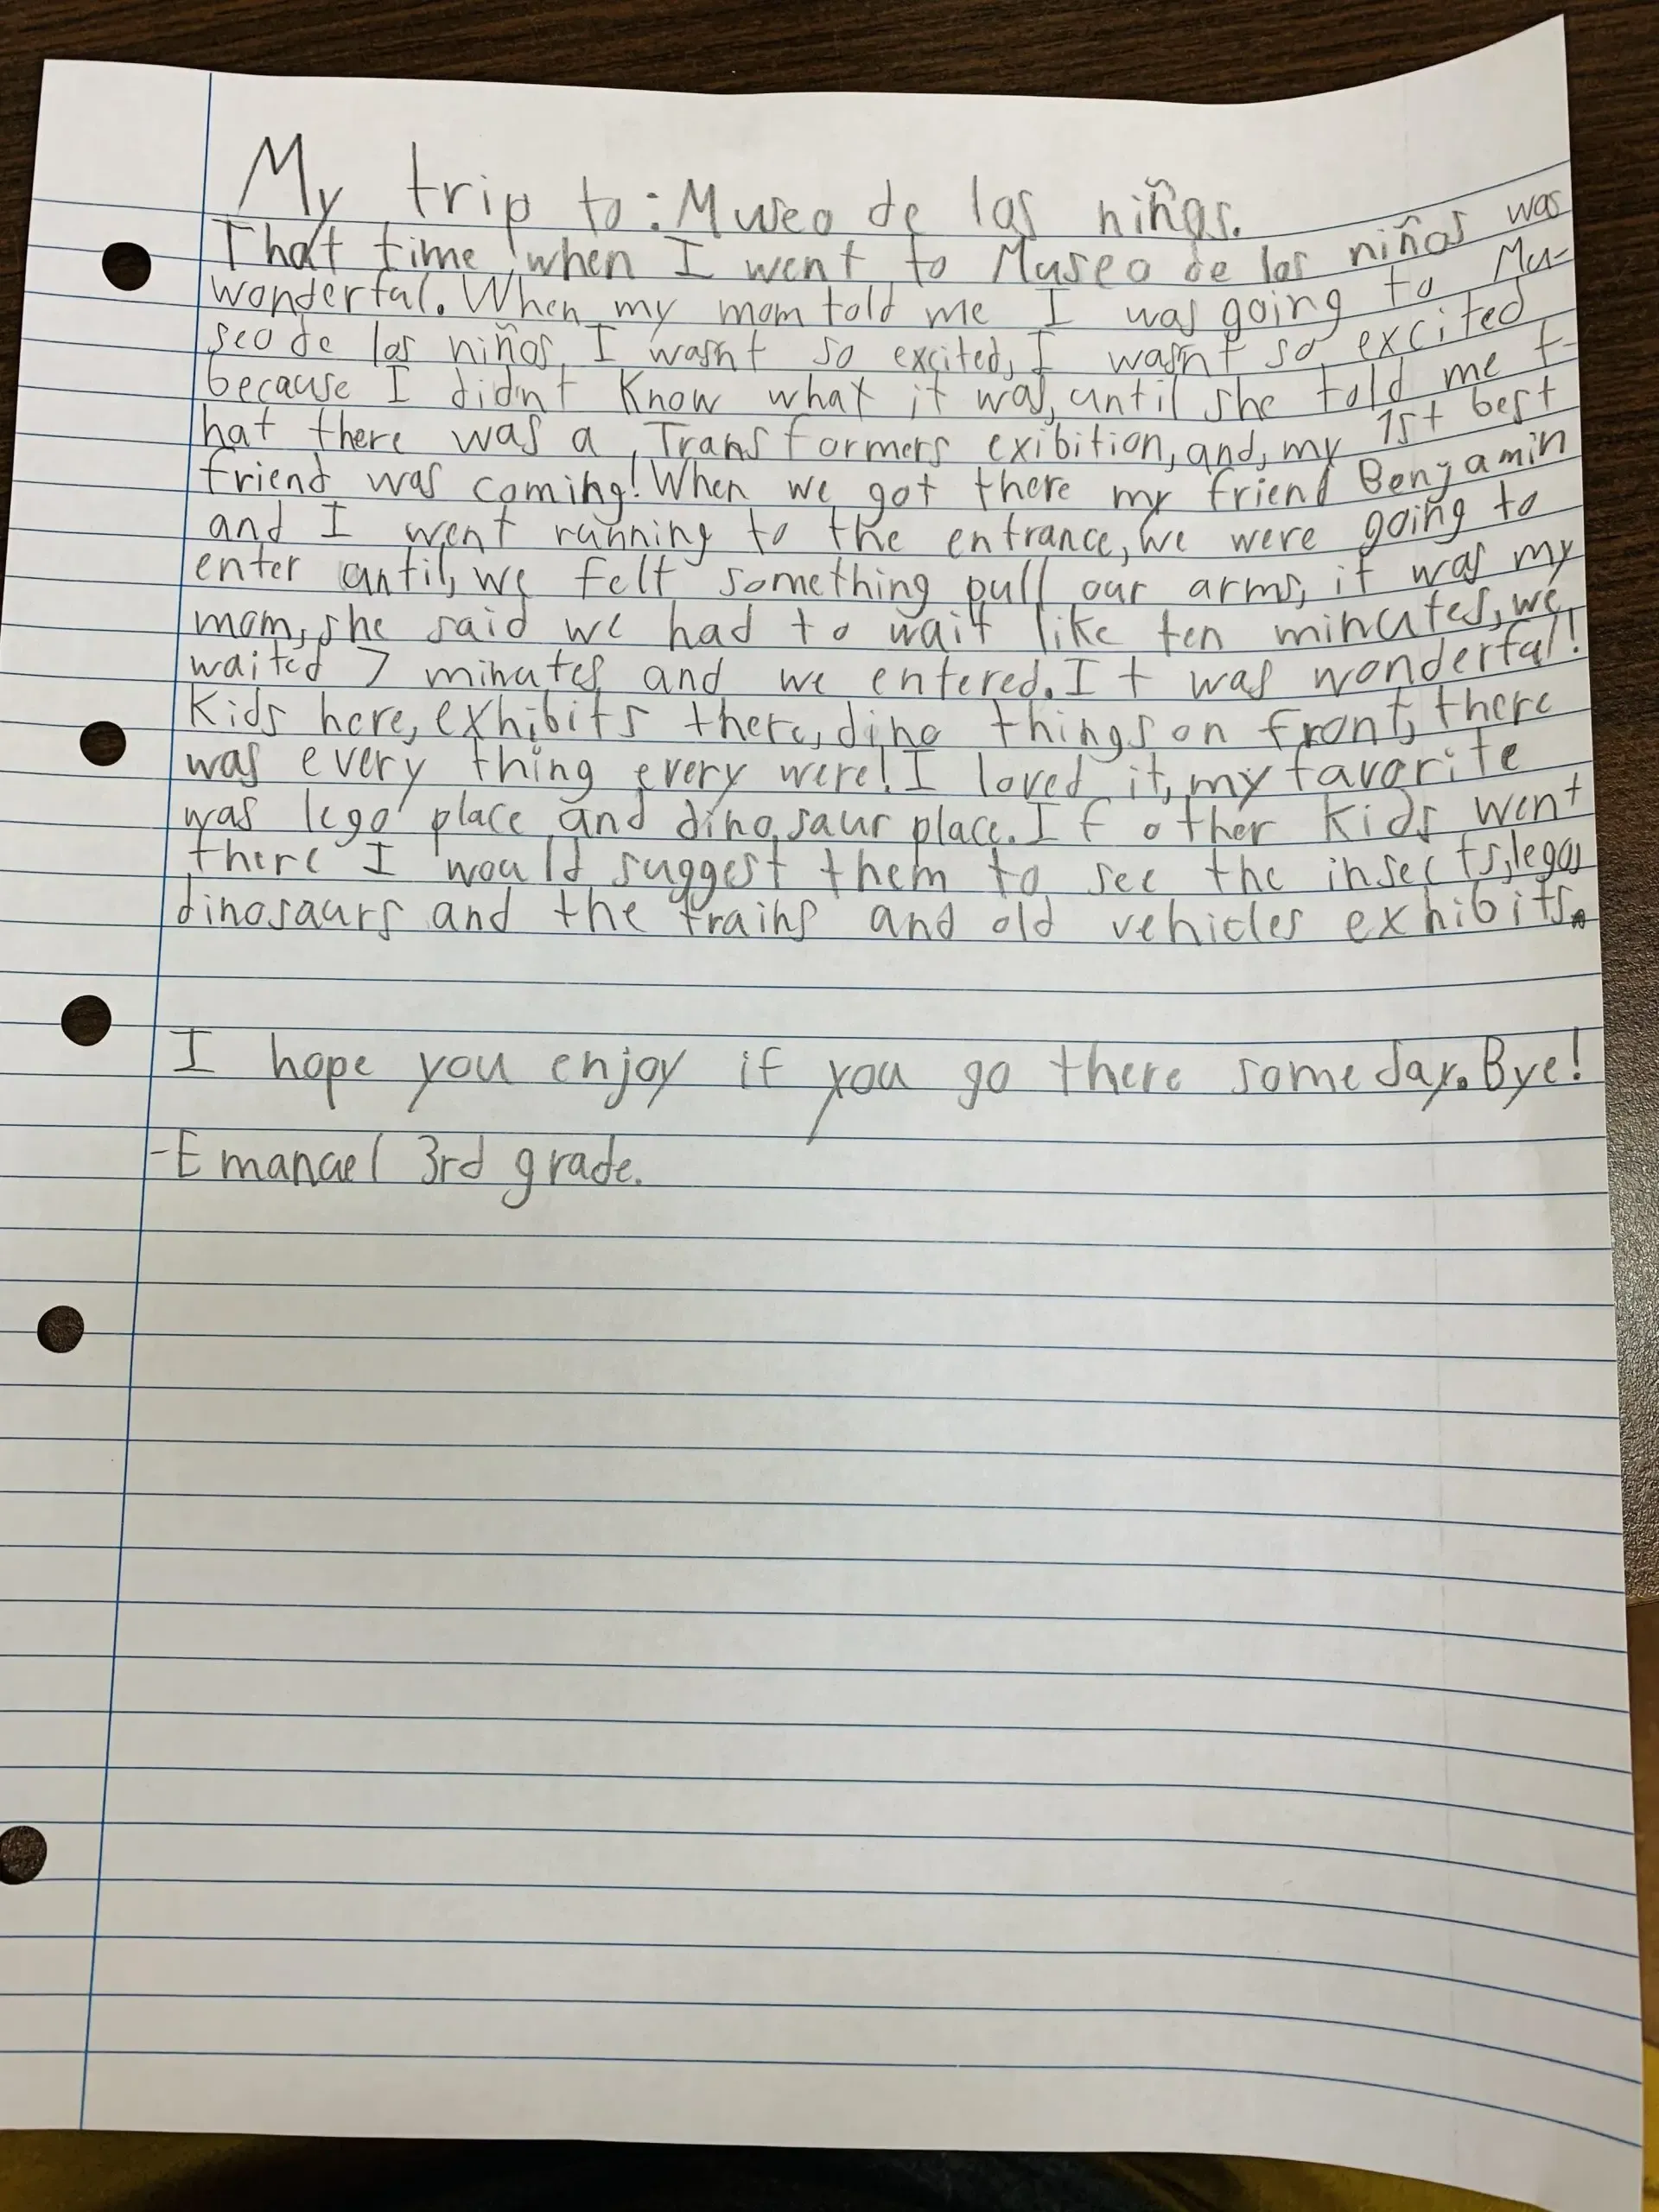 My trip to: Museo de los niños.
That time when I went to Museo de los niños was
wonderful. When my mom told me I was going to Mu-
seo de los niños I wasnt so excited, I wasn't so excited
because I didnt know what it was, until she told me t-
hat there was a Transformers exibition, and, my 1st best
friend was coming! When we got there my friend Benjamin
and I went running to the entrance, we were going to
enter until, we felt something pull our arms, it was my
mom, she said we had to wait like ten minutes, we
waited 7 minutes and we entered. It was wonderful!
Kids here, exhibits there, dino things on front, there
was every thing every were! I loved it, my favorite
was lego place and dinosaur place. If other kids went
there I would suggest them to see the insects, legos
dinosaurs and the trains and old vehicles exhibits.
I hope you enjoy if you go there someday. Bye!
-Emanuel 3rd grade.